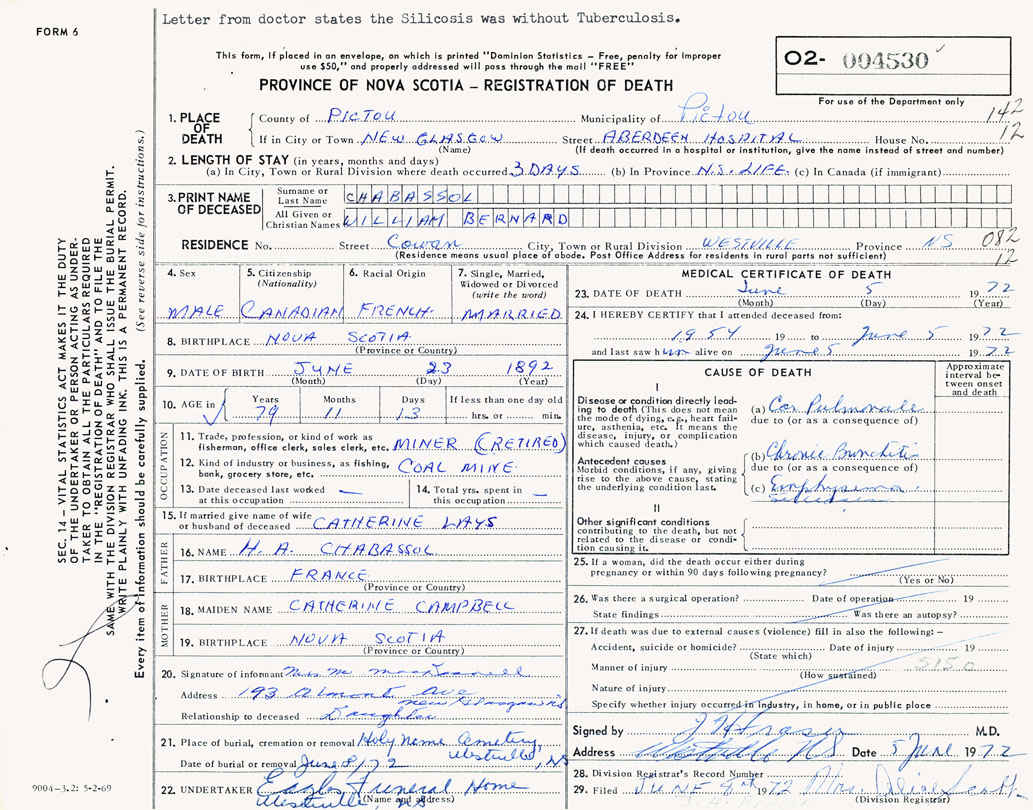 Letter from doctor states the Silicosis was without Tuberculosis.
FORM 6
This form, if placed in an envelope, on which is printed "Dominion Statistics – Free, penalty for improper
use $50," and properly addressed will pass through the mail "FREE"
O2- 004530
PROVINCE OF NOVA SCOTIA – REGISTRATION OF DEATH
For use of the Department only
142
12
1. PLACE OF DEATH
County of PICTOU Municipality of Pictou
If in City or Town NEW GLASGOW Street ABERDEEN HOSPITAL House No.
(Name) (If death occurred in a hospital or institution, give the name instead of street and number)
2. LENGTH OF STAY (in years, months and days)
(a) In City, Town or Rural Division where death occurred 3 DAYS (b) In Province N.S. LIFE. (c) In Canada (if immigrant)
3. PRINT NAME OF DECEASED
Surname or Last Name CHABASSOL
All Given or Christian Names WILLIAM BERNARD
RESIDENCE No. Street Cowan City, Town or Rural Division WESTVILLE Province NS 082
(Residence means usual place of abode. Post Office Address for residents in rural parts not sufficient) 12
4. Sex
MALE
5. Citizenship
(Nationality)
CANADIAN
6. Racial Origin
FRENCH
7. Single, Married,
Widowed or Divorced
(write the word)
MARRIED
8. BIRTHPLACE NOVA SCOTIA
(Province or Country)
9. DATE OF BIRTH JUNE 23 1892
(Month) (Day) (Year)
10. AGE in Years Months Days If less than one day old
79 11 13 hrs. or min.
OCCUPATION
11. Trade, profession, or kind of work as
fisherman, office clerk, sales clerk, etc. MINER (RETIRED)
12. Kind of industry or business, as fishing,
bank, grocery store, etc. COAL MINE
13. Date deceased last worked
at this occupation —
14. Total yrs. spent in
this occupation —
15. If married give name of wife
or husband of deceased CATHERINE LAYS
FATHER
16. NAME H. A. CHABASSOL
17. BIRTHPLACE FRANCE
(Province or Country)
MOTHER
18. MAIDEN NAME CATHERINE CAMPBELL
19. BIRTHPLACE NOVA SCOTIA
(Province or Country)
20. Signature of informant Mrs M
Address 193 Ave
New Glasgow NS
Relationship to deceased Daughter
21. Place of burial, cremation or removal Holy Name Cemetery,
Westville, NS
Date of burial or removal June 8/72
22. UNDERTAKER Eagles Funeral Home
Westville NS
(Name and address)
MEDICAL CERTIFICATE OF DEATH
23. DATE OF DEATH June 5 1972
(Month) (Day) (Year)
24. I HEREBY CERTIFY that I attended deceased from:
1954 19 to June 5 1972
and last saw him alive on June 5 1972
CAUSE OF DEATH
Approximate
interval be-
tween onset
and death
I
Disease or condition directly lead-
ing to death (This does not mean
the mode of dying, e.g., heart fail-
ure, asthenia, etc. It means the
disease, injury, or complication
which caused death.)
(a) Cor Pulmonale
due to (or as a consequence of)
Antecedent causes
Morbid conditions, if any, giving
rise to the above cause, stating
the underlying condition last.
(b) Chronic Bronchitis
due to (or as a consequence of)
(c) Emphysema
Silicosis
II
Other significant conditions
contributing to the death, but not
related to the disease or condi-
tion causing it.
25. If a woman, did the death occur either during
pregnancy or within 90 days following pregnancy?
(Yes or No)
26. Was there a surgical operation? Date of operation 19
State findings Was there an autopsy?
27. If death was due to external causes (violence) fill in also the following: –
Accident, suicide or homicide? Date of injury 19
(State which)
5150
Manner of injury
(How sustained)
Nature of injury
Specify whether injury occurred in Industry, in home, or in public place
Signed by J H Fraser M.D.
Address Westville NS Date 5 June 1972
28. Division Registrar's Record Number
29. Filed JUNE 8th 1972 Mrs. Alice Scott
(Division Registrar)
SEC. 14 – VITAL STATISTICS ACT MAKES IT THE DUTY
OF THE UNDERTAKER OR PERSON ACTING AS UNDER-
TAKER TO OBTAIN ALL THE PARTICULARS REQUIRED
IN THE "REGISTRATION OF DEATH" AND TO FILE THE
SAME WITH THE DIVISION REGISTRAR WHO SHALL ISSUE THE BURIAL PERMIT.
WRITE PLAINLY WITH UNFADING INK. THIS IS A PERMANENT RECORD.
Every item of information should be carefully supplied. (See reverse side for instructions.)
9004-3.2: 5-2-69